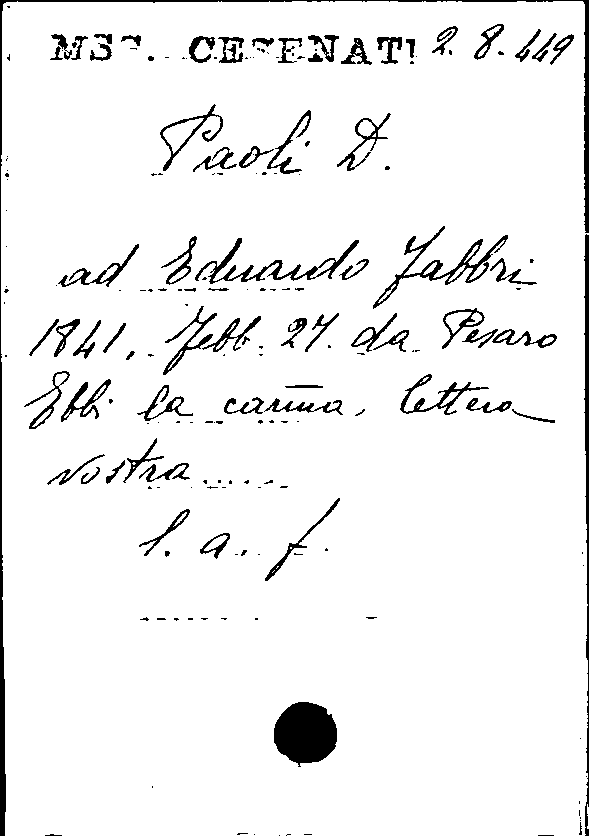 MSS. CESENATI 2. 8. 449
Paoli D.
ad Eduardo Fabbri
1841. Febb. 27. da Pesaro
Ebbi la carma. lettera
vostra .....
l. a. f.